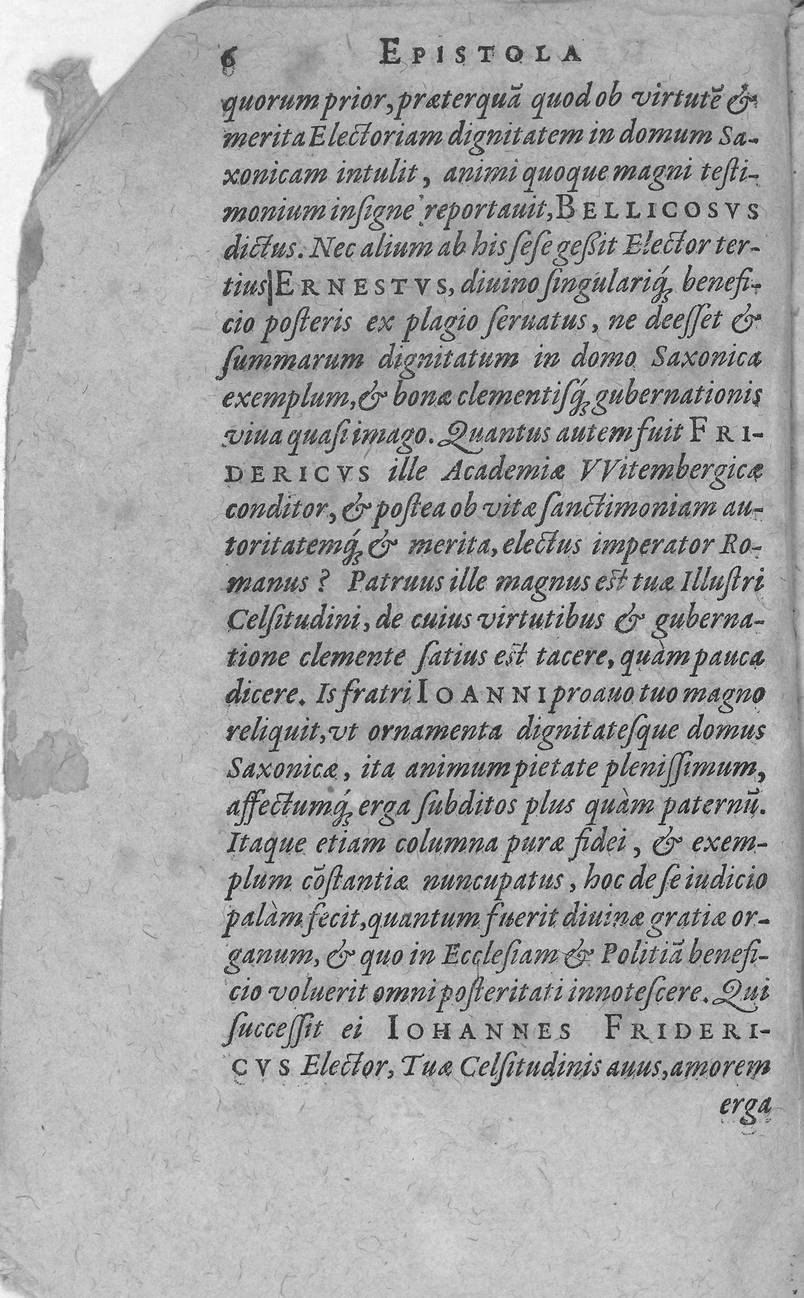 6 EPISTOLA
quorum prior, præterquã quod ob virtutẽ &
merita Electoriam dignitatem in domum Sa-
xonicam intulit, animi quoque magni testi-
monium insigne reportauit, BELLICOSVS
dictus. Nec alium ab his sese geßit Elector ter-
tius ERNESTVS, diuino singulariq́; benefi-
cio posteris ex plagio seruatus, ne deesset &
summarum dignitatum in domo Saxonica
exemplum, & bonæ clementisq́; gubernationis
viua quasi imago. Quantus autem fuit FRI-
DERICVS ille Academiæ VVitembergicæ
conditor, & postea ob vitæ sanctimoniam au-
toritatemq́; & merita, electus imperator Ro-
manus? Patruus ille magnus est tuæ Illustri
Celsitudini, de cuius virtutibus & guberna-
tione clemente satius est tacere, quàm pauca
dicere. Is fratri IOANNI proauo tuo magno
reliquit, vt ornamenta dignitatesque domus
Saxonicæ, ita animum pietate plenissimum,
affectumq́; erga subditos plus quàm paternũ.
Itaque etiam columna puræ fidei, & exem-
plum cõstantiæ nuncupatus, hoc de se iudicio
palàm fecit, quantum fuerit diuinæ gratiæ or-
ganum, & quo in Ecclesiam & Politiã benefi-
cio voluerit omni posteritati innotescere. Qui
successit ei IOHANNES FRIDERI-
CVS Elector, Tuæ Celsitudinis auus, amorem
erga